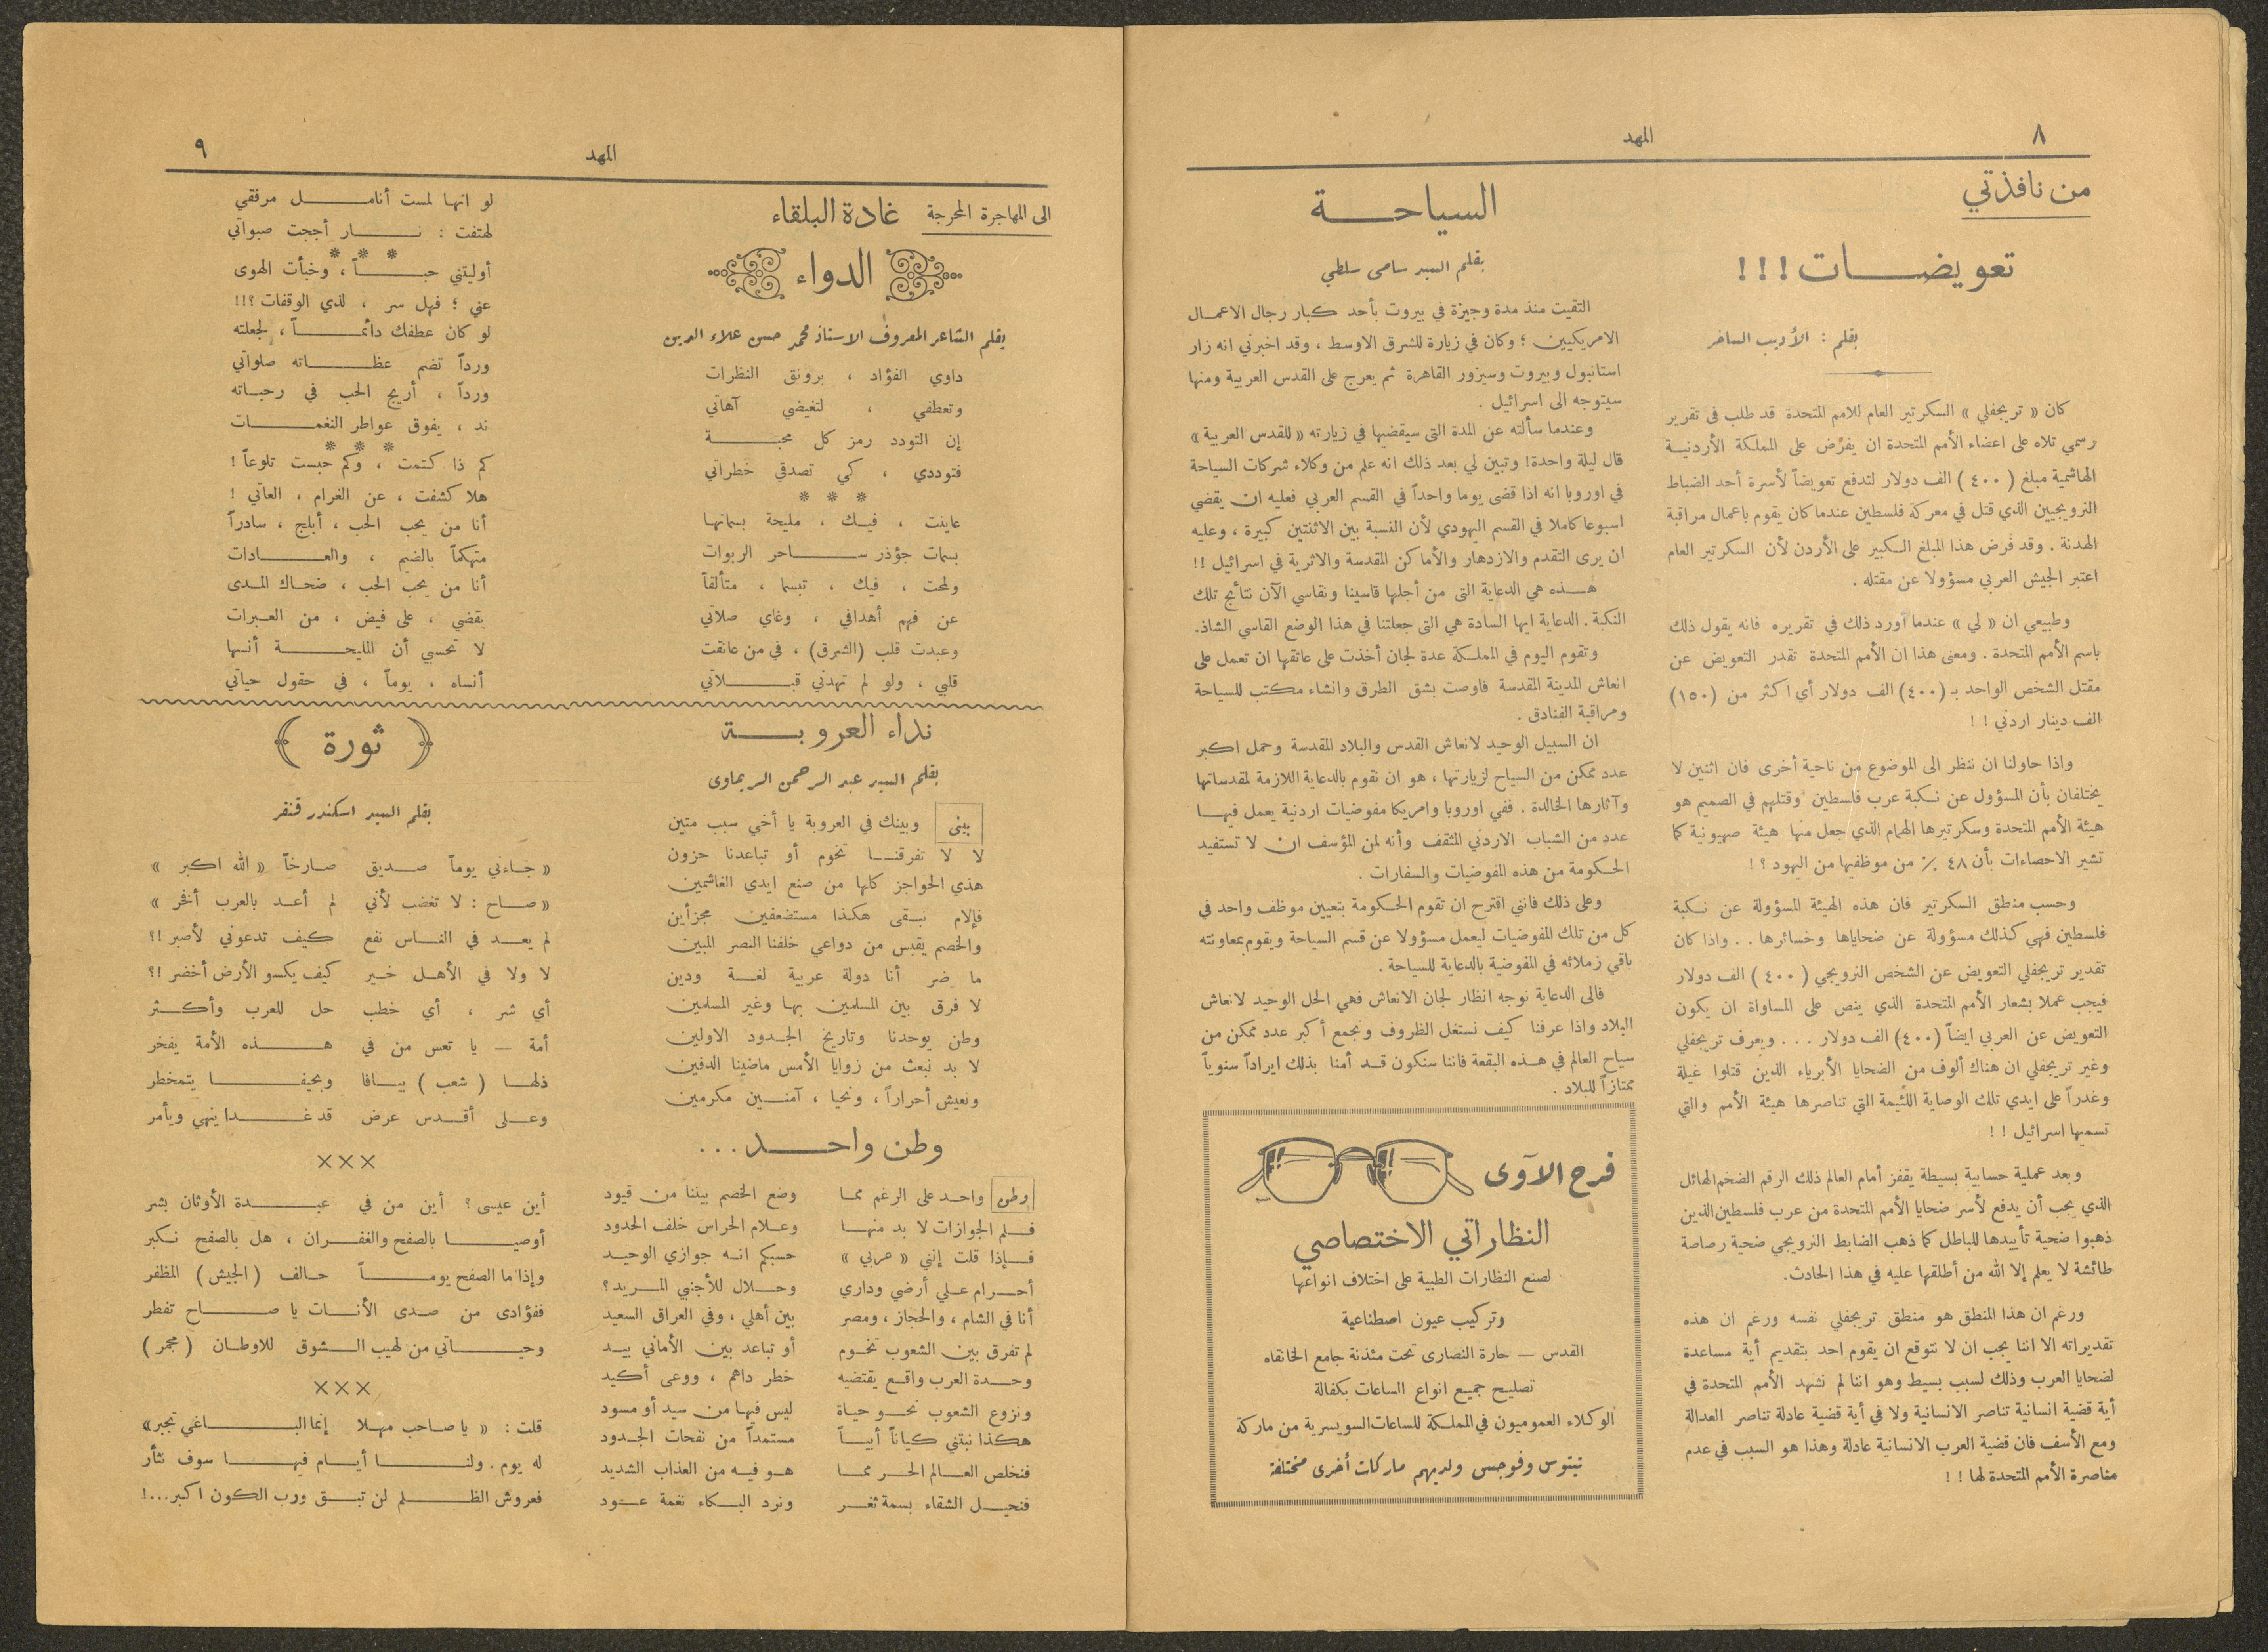 ٨
المهد
من نافذتي
تعويضات!!!
بقلم : الأديب الساخر
كان « تريجفلي » السكرتير العام للامم المتحدة قد طلب فى تقرير
رسمي تلاه على اعضاء الأمم المتحدة ان يفرّض على المملكة الأردنية
الهاشمية مبلغ ( ٤٠٠ ) الف دولار لتدفع تعويضاً لأسرة أحد الضباط
النرويجيين الذي قتل في معركة فلسطين عندما كان يقوم باعمال مراقبة
الهدنة . وقد فرض هذا المبلغ الكبير على الأردن لأن السكرتير العام
اعتبر الجيش العربي مسؤولا عن مقتله .
وطبيعي ان « لي » عندما أورد ذلك في تقريره فانه يقول ذلك
باسم الأمم المتحدة . ومعنى هذا ان الأمم المتحدة تقدر التعويض عن
مقتل الشخص الواحد بـ (٤٠٠) الف دولار أي اكثر من (١٥٠)
الف دينار اردني ! !
واذا حاولنا ان ننظر الى الموضوع من ناحية أخرى فان اثنين لا
يختلفان بأن المسؤول عن نكبة عرب فلسطين وقتلهم في الصميم هو
هيئة الأمم المتحدة وسكرتيرها الهمام الذي جعل منها هيئة صهيونية كما
تشير الاحصاءات بأن ٤٨ ٪ من موظفيها من اليهود ؟ !
وحسب منطق السكرتير فان هذه الهيئة المسؤولة عن نكبة
فلسطين فهي كذلك مسؤولة عن ضحاياها وخسائرها . . واذا كان
تقدير تريجفلي التعويض عن الشخص النرويجي ( ٤٠٠ ) الف دولار
فيجب عملا بشعار الأمم المتحدة الذي ينص على المساواة ان يكون
التعويض عن العربي ايضاً (٤٠٠) الف دولار . . . ويعرف تريجفلي
وغير تريجفلي ان هناك ألوف من الضحايا الأبرياء الذين قتلوا غيلة
وغدراً على ايدي تلك الوصاية اللئيمة التي تناصرها هيئة الأمم والتي
تسميها اسرائيل ! !
وبعد عملية حسابية بسيطة يقفز أمام العالم ذلك الرقم الضخم الهائل
الذي يجب أن يدفع لأسر ضحايا الأمم المتحدة من عرب فلسطين الذين
ذهبوا ضحية تأييدها للباطل كما ذهب الضابط النرويجي ضحية رصاصة
طائشة لا يعلم إلا الله من أطلقها عليه في هذا الحادث.
ورغم ان هذا المنطق هو منطق تريجفلي نفسه ورغم ان هذه
تقديراته الا اننا يجب ان لا نتوقع ان يقوم احد بتقديم أية مساعدة
لضحايا العرب وذلك لسبب بسيط وهو اننا لم نشهد الأمم المتحدة في
أية قضية انسانية تناصر الانسانية ولا في أية قضية عادلة تناصر العدالة
ومع الأسف فان قضية العرب الانسانية عادلة وهذا هو السبب في عدم
مناصرة الأمم المتحدة لها ! !
السياحة
بقلم السيد سامى سلطي
التقيت منذ مدة وجيزة في بيروت بأحد كبار رجال الاعمال
الامريكيين ؛ وكان في زيارة للشرق الاوسط ، وقد اخبرني انه زار
استانبول وبيروت وسيزور القاهرة ثم يعرج على القدس العربية ومنها
سيتوجه الى اسرائيل .
وعندما سألته عن المدة التى سيقضيها في زيارته « للقدس العربية »
قال ليلة واحدة! وتبين لي بعد ذلك انه علم من وكلاء شركات السياحة
في اوروبا انه اذا قضى يوما واحداً في القسم العربي فعليه ان يقضي
اسبوعا كاملا في القسم اليهودي لأن النسبة بين الاثنتين كبيرة ، وعليه
ان يرى التقدم والازدهار والأماكن المقدسة والاثرية في اسرائيل !!
هذه هي الدعاية التى من أجلها قاسينا ونقاسي الآن نتائج تلك
النكبة . الدعاية ايها السادة هي التى جعلتنا في هذا الوضع القاسي الشاذ.
وتقوم اليوم في المملكة عدة لجان أخذت على عاتقها ان تعمل على
انعاش المدينة المقدسة فاوصت بشق الطرق وانشاء مكتب للسياحة
ومراقبة الفنادق .
ان السبيل الوحيد لانعاش القدس والبلاد المقدسة وحمل اكبر
عدد ممكن من السياح لزيارتها ، هو ان نقوم بالدعاية اللازمة لمقدساتها
وآثارها الخالدة . ففي اوروبا وامريكا مفوضيات اردنية يعمل فيها
عدد من الشباب الاردني المثقف وأنه لمن المؤسف ان لا تستفيد
الحكومة من هذه المفوضيات والسفارات .
وعلى ذلك فانني اقترح ان تقوم الحكومة بتعيين موظف واحد في
كل من تلك المفوضيات ليعمل مسؤولا عن قسم السياحة ويقوم بمعاونته
باقي زملائه في المفوضية بالدعاية للسياحة .
فالى الدعاية نوجه انظار لجان الانعاش فهي الحل الوحيد لانعاش
البلاد واذا عرفنا كيف نستغل الظروف ونجمع أكبر عدد ممكن من
سياح العالم في هذه البقعة فاننا سنكون قد أمنا بذلك ايراداً سنوياً
ممتازاً للبلاد .
فرح الآوى
النظاراتي الاختصاصي
لصنع النظارات الطبية على اختلاف انواعها
وتركيب عيون اصطناعية
القدس – حارة النصارى تحت مئذنة جامع الخانقاه
تصليح جميع انواع الساعات بكفالة
الوكلاء العموميون في المملكة للساعات السويسرية من ماركة
تيتوس وفوجس ولديهم ماركات أخرى مختلفة
المهد
٩
الى المهاجرة المحرجة غادة البلقاء
الدواء
بقلم الشاعر المعروف الاستاذ محمد حسن علاء الدين
داوي الفؤاد ، برونق النظرات
وتعطفي ، لتغيضي آهاتي
إن التودد رمز كل محبة
فتوددي ، كي تصدقي خطراتي
* * *
عاينت ، فيك ، مليحة بسماتها
بسمات جؤذر ساحر الربوات
ولمحت ، فيك ، تبسما ، متألقاً
عن فهم أهدافي ، وغاي صلاتي
وعبدت قلب (الشرق) ، في من عانقت
قلبي ، ولو لم تهدني قبلاتي
لو انها لمست أنامل مرفقي
لهتفت : نار أججت صبواتي
* * *
أوليتني حباً ، وخبأت الهوى
عني ؛ فهل سر ، لذي الوقفات ؟!!
لو كان عطفك دائماً ، لجعلته
ورداً تضم عظاته صلواتي
ورداً ، أريج الحب في رحباته
ند ، يفوق عواطر النغمات
* * *
كم ذا كتمت ، وكم حبست تلوعاً !
هلا كشفت ، عن الغرام ، العاتي !
أنا من يحب الحب ، أبلج ، سادراً
متهكماً بالضيم ، والعادات
أنا من يحب الحب ، ضحاك المدى
يقضي ، على فيض ، من العبرات
لا تحسبي أن المليحة أنسها
أنساه ، يوماً ، في حقول حياتي
نداء العروبة
بقلم السيد عبد الرحمن الريماوى
بينى وبينك في العروبة يا أخي سبب متين
لا لا تفرقنا تخوم أو تباعدنا حزون
هذي الحواجز كلها من صنع ايدي الغاشمين
فإلام نبقى هكذا مستضعفين مجزأين
والخصم يقبس من دواعي خلفنا النصر المبين
ما ضر أنا دولة عربية لغة ودين
لا فرق بين المسلمين بها وغير المسلمين
وطن يوحدنا وتاريخ الجدود الاولين
لا بد نبعث من زوايا الأمس ماضينا الدفين
ونعيش أحراراً ، ونحيا ، آمنين مكرمين
وطن واحد...
وطن واحد على الرغم مما وضع الخصم بيننا من قيود
فلم الجوازات لا بد منها وعلام الحراس خلف الحدود
فإذا قلت إنني « عربي » حسبكم انه جوازي الوحيد
أحرام علي أرضي وداري وحلال للأجنبي المريد؟
أنا في الشام ، والحجاز ، ومصر بين أهلي ، وفي العراق السعيد
لم تفرق بين الشعوب تخوم أو تباعد بين الأماني بيد
وحدة العرب واقع يقتضيه خطر داهم ، ووعى أكيد
ونزوع الشعوب نحو حياة ليس فيها من سيد أو مسود
هكذا نبتني كياناً أبياً مستمداً من نفحات الجدود
فنخلص العالم الحر مما هو فيه من العذاب الشديد
فنحيل الشقاء بسمة ثغر ونرد البكاء نغمة عود
( ثورة )
بقلم السيد اسكندر قنفر
« جاءني يوماً صديق صارخاً « الله اكبر »
« صاح : لا تغضب لأني لم أعد بالعرب أفخر »
لم يعد في الناس نفع كيف تدعوني لأصبر !؟
لا ولا في الأهل خير كيف يكسو الأرض أخضر !؟
أي شر ، أي خطب حل للعرب وأكثر
أمة – يا تعس من في هذه الأمة يفخر
ذلها ( شعب ) بيافا وبحيفا يتمخطر
وعلى أقدس عرض قد غدا ينهي ويأمر
×××
أين عيسى ؟ أين من في عبدة الأوثان بشر
أوصيا بالصفح والغفران ، هل بالصفح نكبر
وإذا ما الصفح يوماً حالف (الجيش) المظفر
ففؤادى من صدى الأنات يا صاح تفطر
وحياتي من لهيب الشوق للاوطان ( مجمر )
×××
قلت : « يا صاحب مهلا إنما الباغي تجبر»
له يوم . ولنا أيام فيها سوف نثأر
فعروش الظلم لن تبق ورب الكون اكبر...!